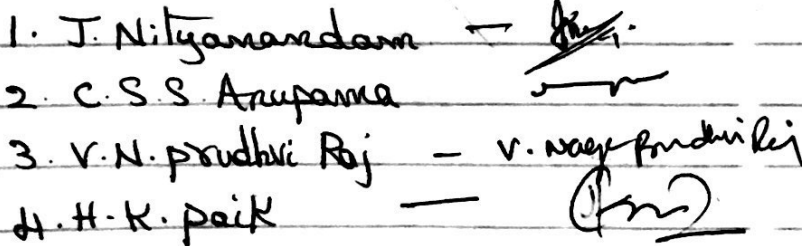 1. J. Nityanandam -
2. C.S.S. Anupama
3. V.N. prudhvi Raj - V. Naga Prudhvi Raj
4. H.K. paik -